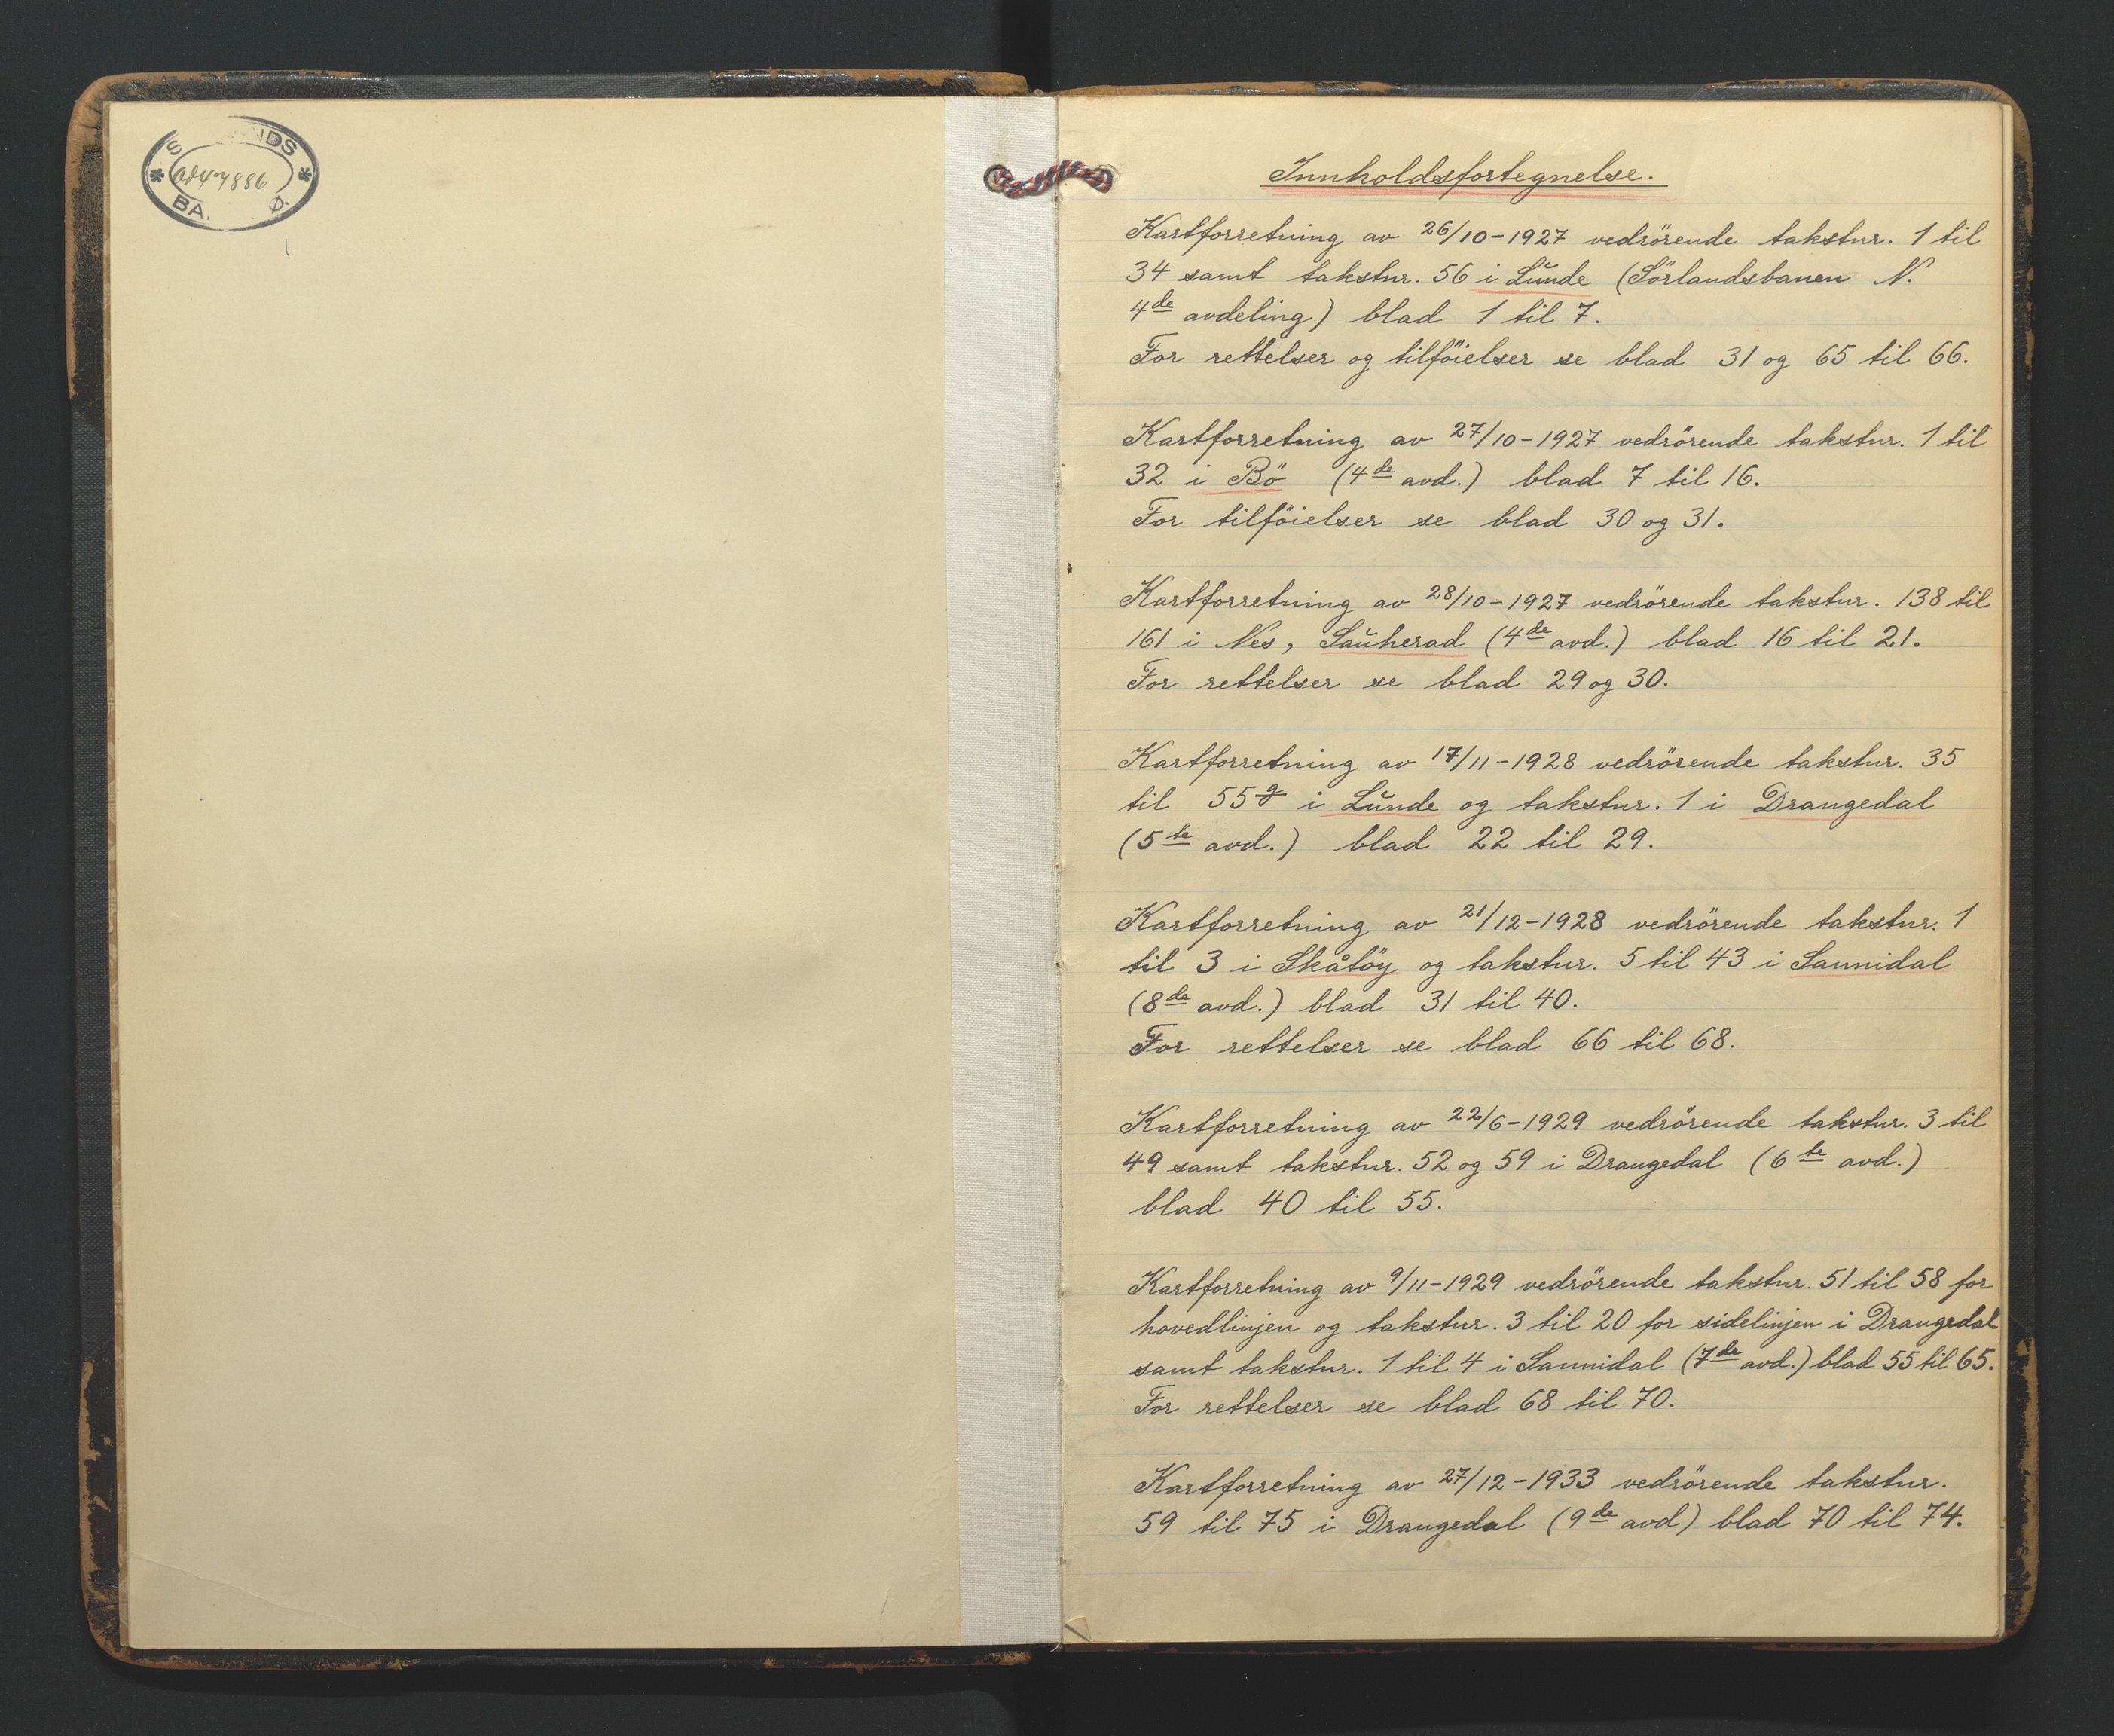 BA. Ø.
Innholdsfortegnelse.
Kartforretning av 26/10-1927 vedrörende takstnr. 1 til
34 samt takstnr. 56 i Lŭnde (Sörlandsbanen N.
4de avdeling) blad 1 til 7.
For rettelser og tilföielser se blad 31 og 65 til 66.
Kartforretning av 27/10-1927 vedrörende takstnr. 1 til
32 i Bö (4de avd.) blad 7 til 16.
For tilföielser se blad 30 og 31.
Kartforretning av 28/10-1927 vedrörende takstnr. 138 til
161 i Nes, Saŭherad (4de avd.) blad 16 til 21.
For rettelser se blad 29 og 30.
Kartforretning av 17/11-1928 vedrörende takstnr. 35
til 55g i Lŭnde og takstnr. 1 i Drangedal
(5te avd.) blad 22 til 29.
Kartforretning av 21/12-1928 vedrörende takstnr. 1
til 3 i Skåtöy og takstnr. 5 til 43 i Sannidal
(8de avd.) blad 31 til 40.
For rettelser se blad 66 til 68.
Kartforretning av 22/6-1929 vedrörende takstnr. 3 til
49 samt takstnr. 52 og 59 i Drangedal (6te avd.)
blad 40 til 55.
Kartforretning av 9/11-1929 vedrörende takstnr. 51 til 58 for
hovedlinjen og takstnr. 3 til 20 for sidelinjen i Drangedal
samt takstnr. 1 til 4 i Sannidal (7de avd.) blad 55 til 65.
For rettelser se blad 68 til 70.
Kartforretning av 27/12-1933 vedrörende takstnr.
59 til 75 i Drangedal (9de avd) blad 70 til 74.